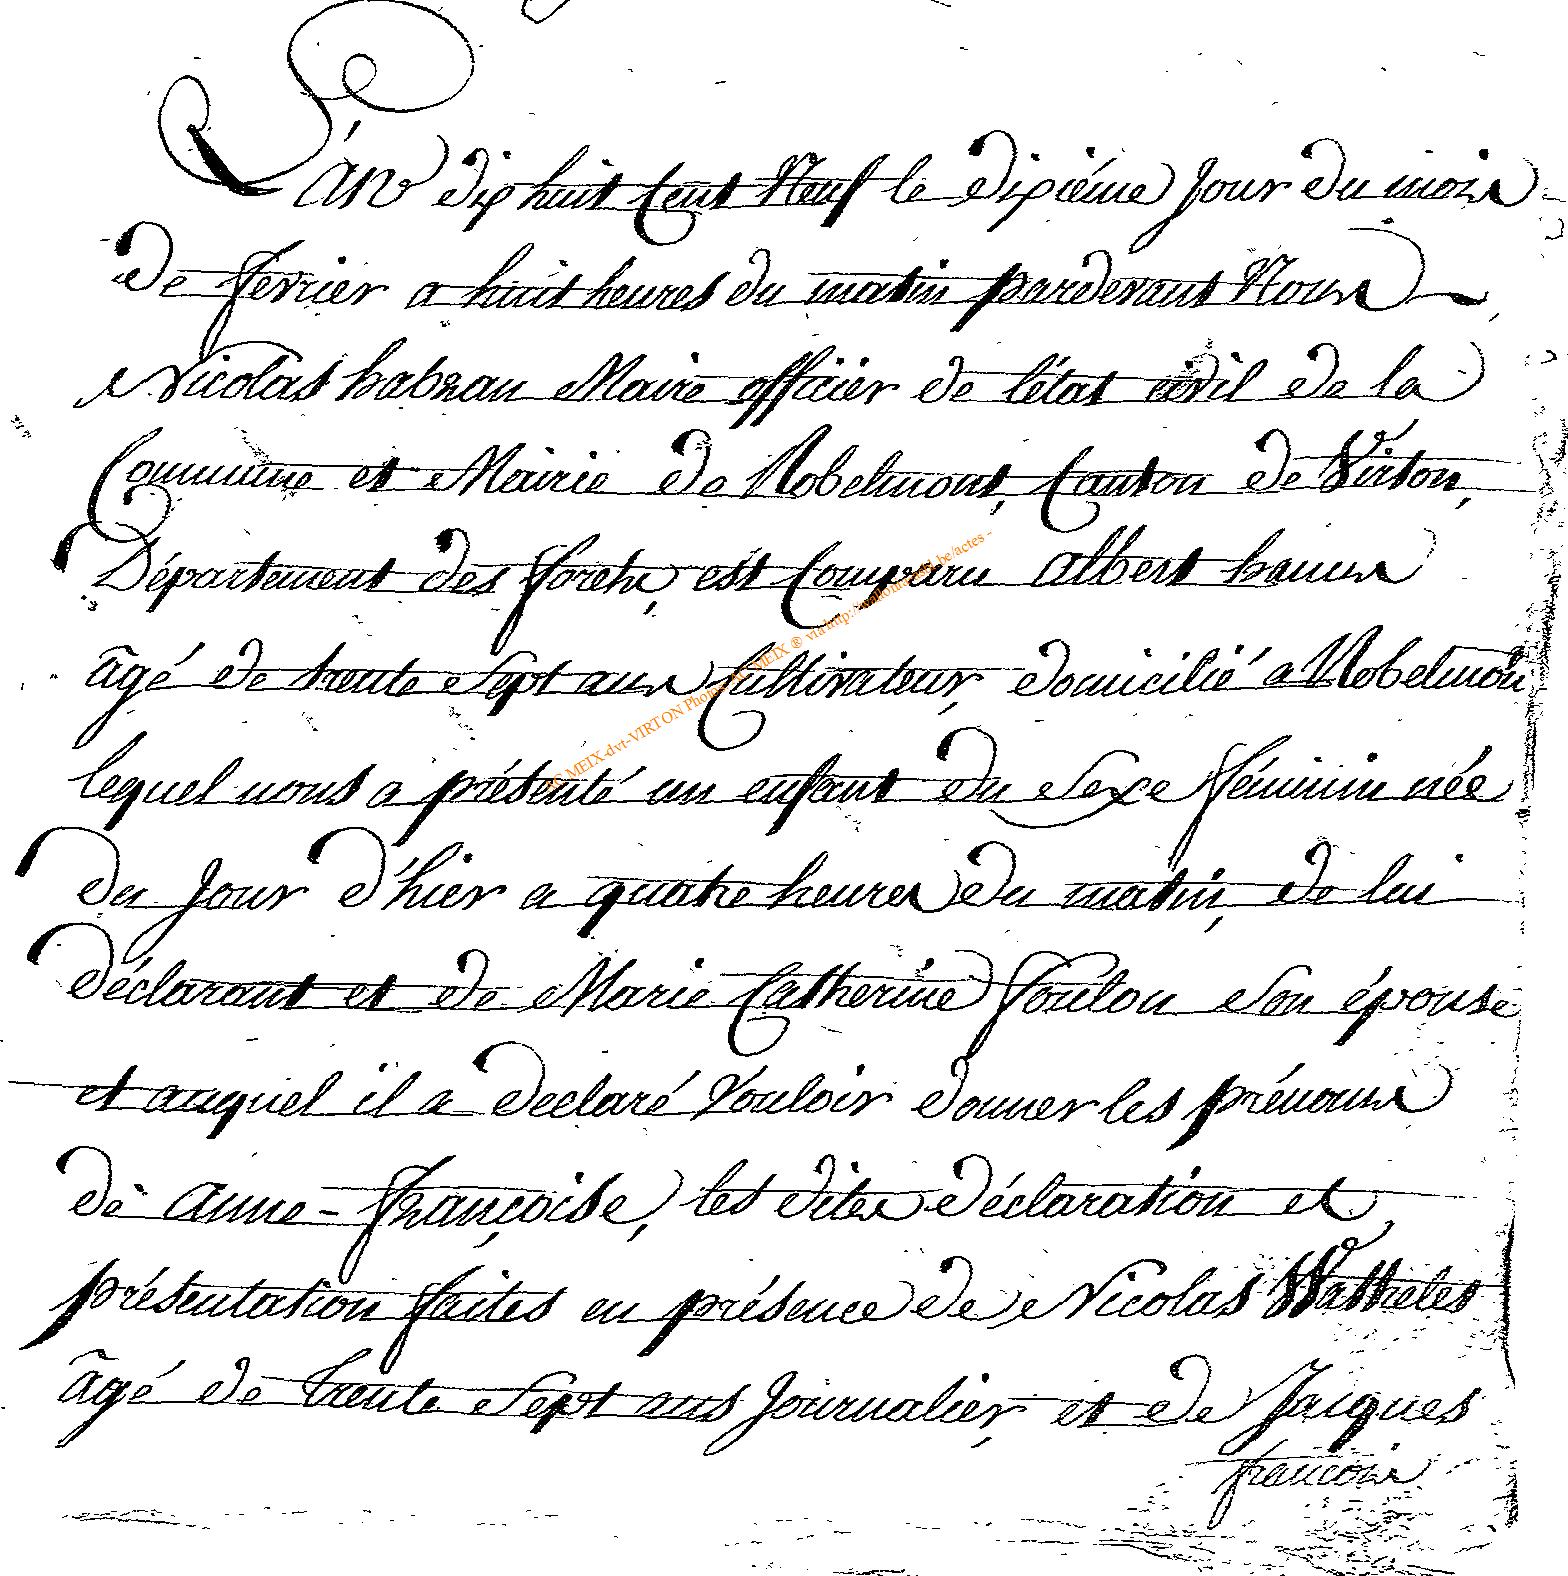 L'an dix huit Cent Neuf le dixiéme Jour du mois
De fevrier a huit heures du matin pardevant Nous
Nicolas habran Maire officier de l'état civil de la
Commune et Mairie de Robelmont, Canton de Virton,
Département des forêts, est Comparu albert hanus
âgé de trente Sept ans Cultivateur, domicilié a Robelmon
lequel nous a présenté un enfant du Sexe féminin née
Du Jour d'hier a quatre heures du matin, de lui
déclarant et de Marie Catherine foulon Son épouse
et auquel il a declaré Vouloir donner les prénoms
de anne-françoise, les dites déclaration et
présentation faites en présence de Nicolas Watrelet
âgé de trente Sept ans Journalier, et de Jacques
francois
MEIX-dvt-VIRTON MEIX ® via http:// .be/actes -